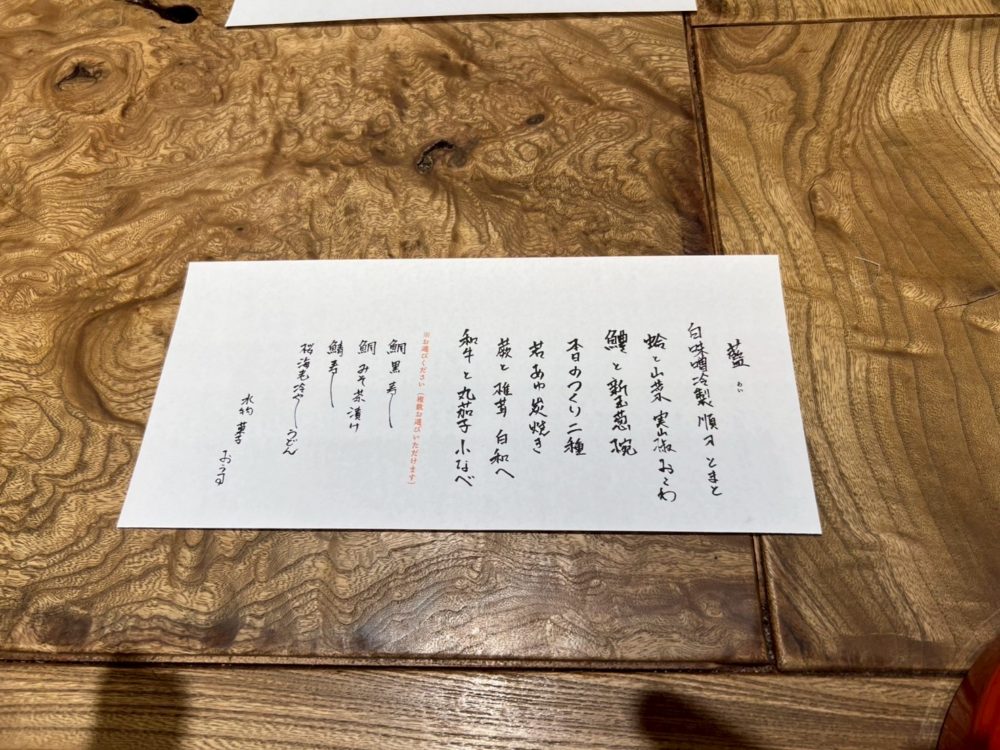 藍 あい
白味噌冷製 順才 とまと
蛤と山菜 実山椒おこわ
鱧と新玉葱 椀
本日のつくり 二種
若あゆ炭焼き
蕨と椎茸 白和へ
和牛と丸茄子 小なべ
※お選びください（複数お選びいただけます）
鯛黒寿し
鯛みそ茶漬け
鯖寿し
桜海老冷やしうどん
水物 菓子